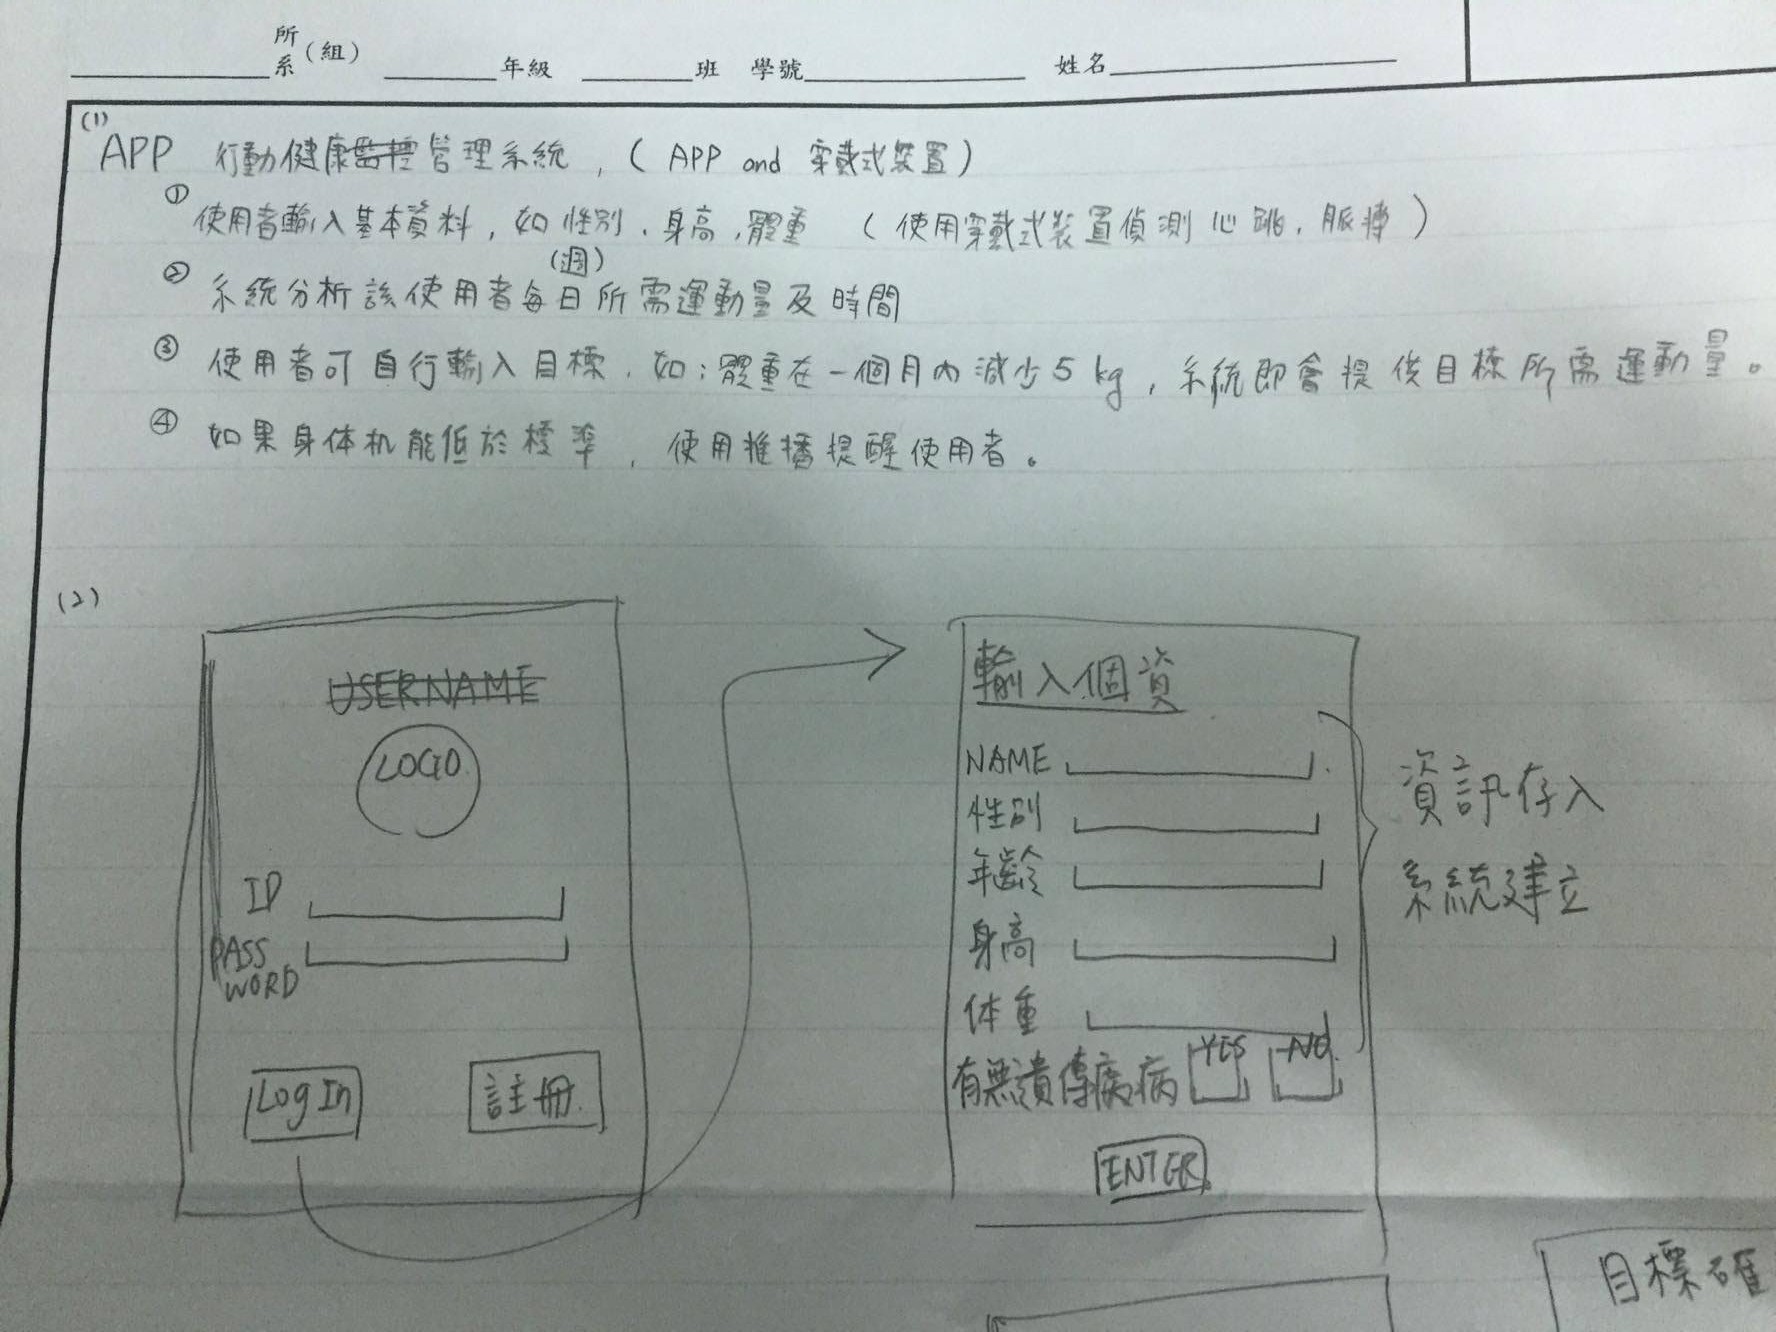 所
系(組) 年級 班 學號 姓名
(1)
APP 行動健康監控管理系統,( APP and 穿戴式裝置)
① 使用者輸入基本資料,如性別、身高、體重 (使用穿戴式裝置偵測心跳、脈搏)
(週)
② 系統分析該使用者每日所需運動量及時間
③ 使用者可自行輸入目標,如:體重在一個月內減少5kg,系統即會提供目標所需運動量。
④ 如果身体机能低於標準,使用推播提醒使用者。
(2)
USERNAME
LOGO
ID
PASS
WORD
Log In 註冊
輸入個資
NAME
性別
年齡
身高
体重
有無遺傳疾病 YES NO
ENTER
資訊存入
系統建立
目標確